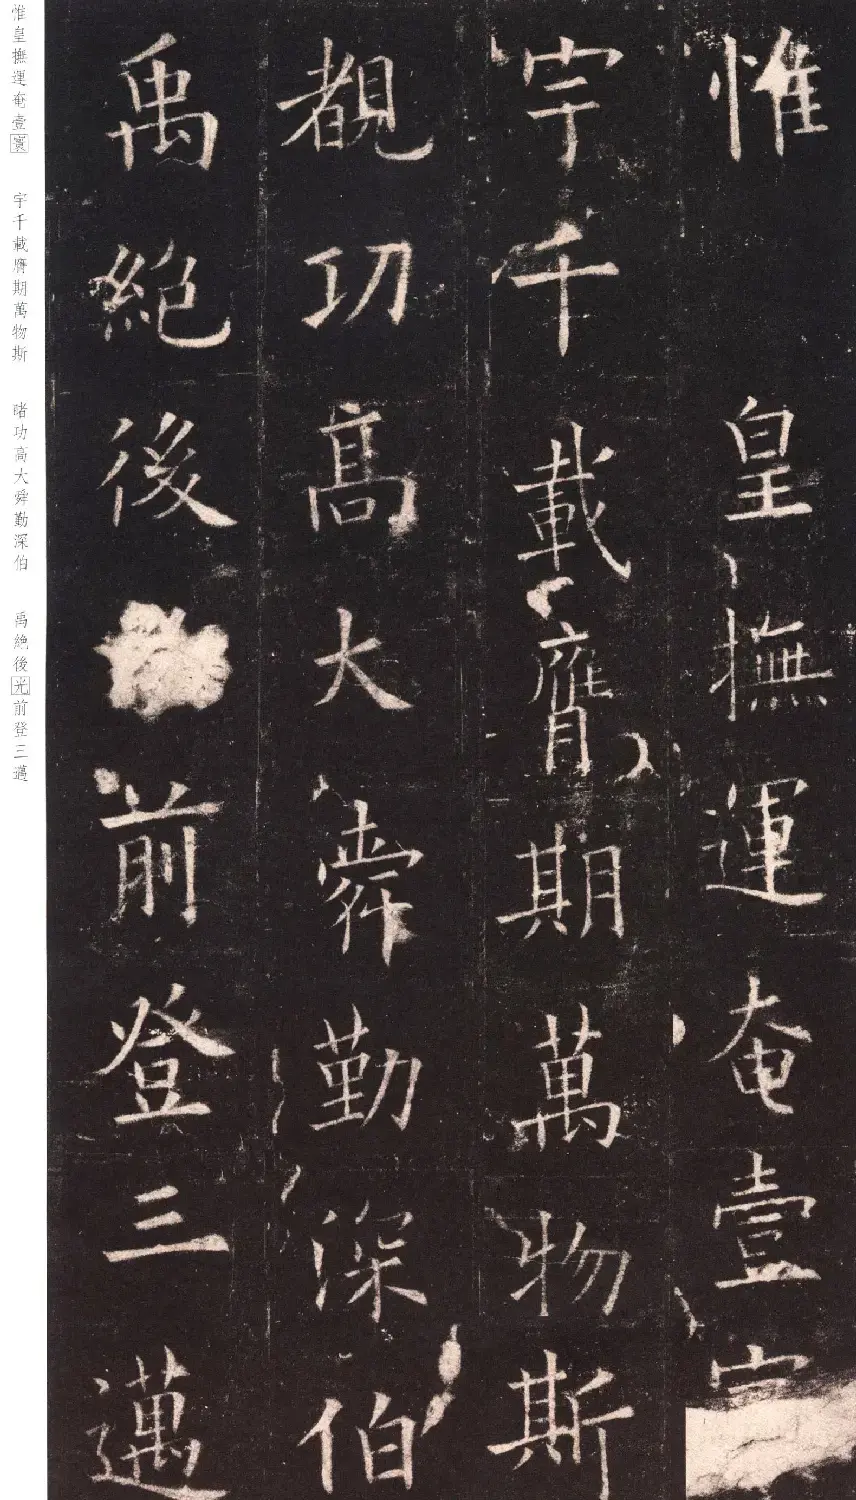 惟皇撫運奄壹
宇千載膺期萬物斯
覩功高大舜勤深伯
禹絕後前登三邁
惟皇撫運奄壹寰
宇千載膺期萬物斯
睹功高大舜勤深伯
禹絶後光前登三邁